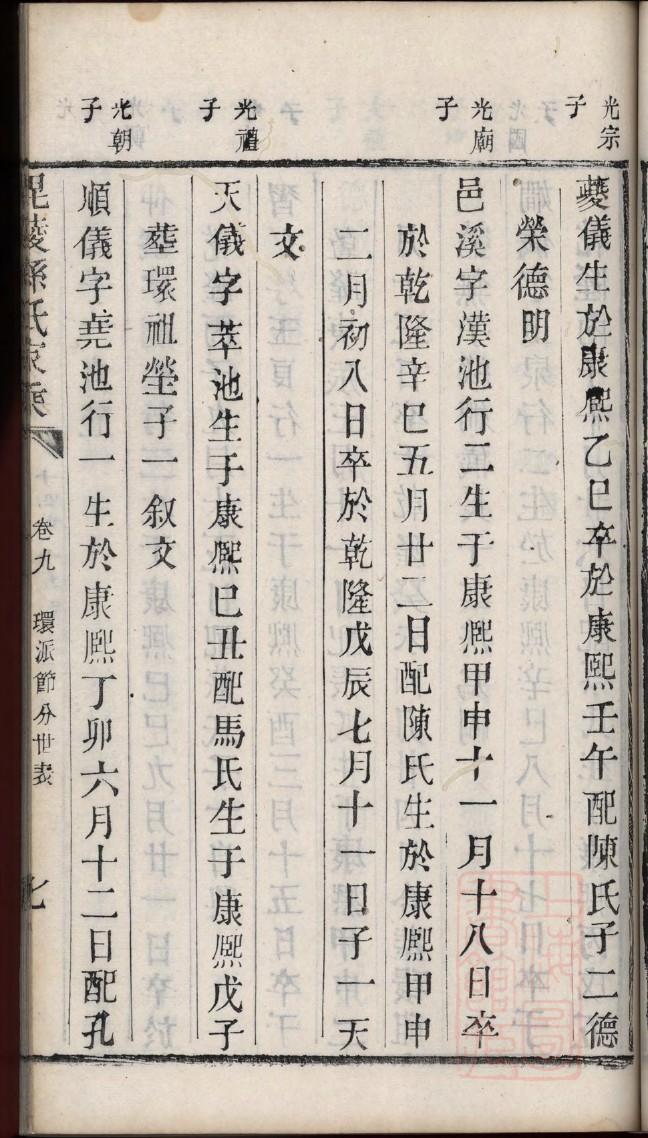 光宗子
夔儀生於康熙乙巳卒於康熙壬午配陳氏子二德
榮德明
光廟子
邑溪字漢池行二生于康熙甲申十一月十八日卒
於乾隆辛巳五月廿二日配陳氏生於康熙甲申
二月初八日卒於乾隆戊辰七月十一日子一天
文
光禮子
天儀字萃池生于康熙巳丑配馬氏生于康熙戊子
塟環祖塋子一叙文
光朝子
順儀字堯池行一生於康熙丁卯六月十二日配孔
毘陵孫氏家乘
卷九 環派節分世表
七